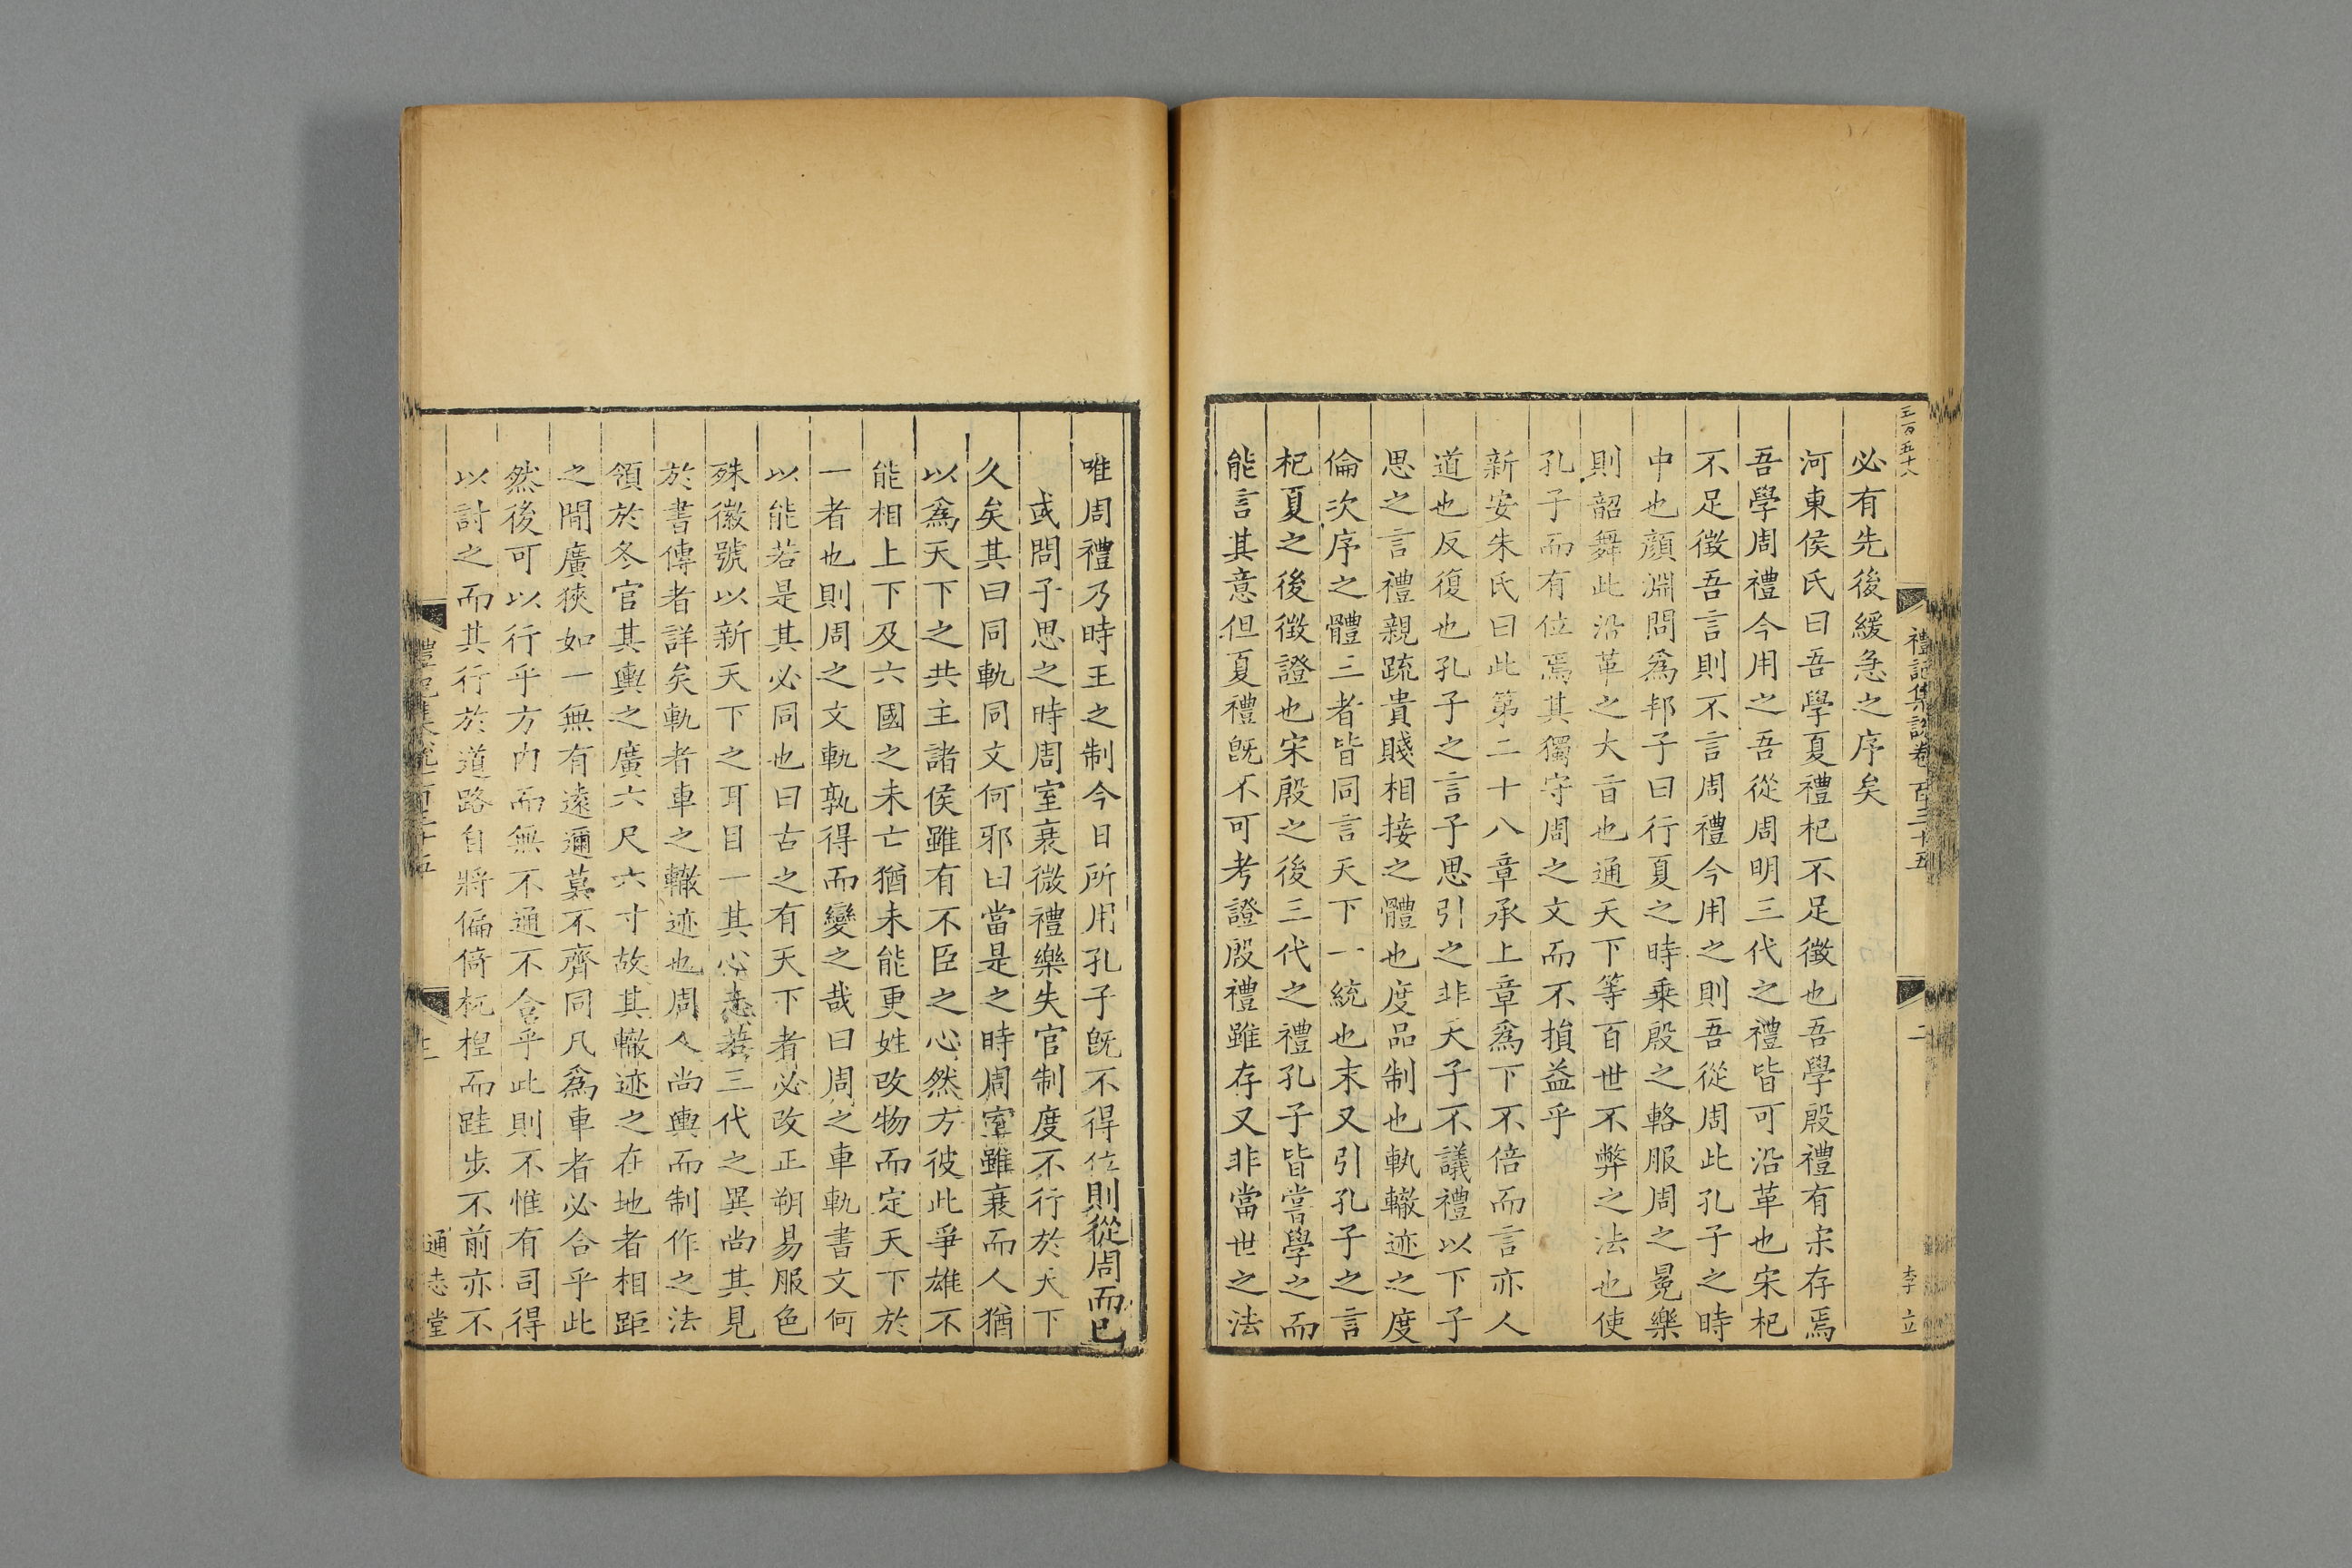 三百五十八
禮記集說卷百三十五
二
李立
必有先後緩急之序矣
河東侯氏曰吾學夏禮杞不足徵也吾學殷禮有宋存焉
吾學周禮今用之吾從周明三代之禮皆可沿革也宋杞
不足徵吾言則不言周禮今用之則吾從周此孔子之時
中也顏淵問爲邦子曰行夏之時乘殷之輅服周之冕樂
則韶舞此沿革之大旨也通天下等百世不弊之法也使
孔子而有位焉其獨守周之文而不損益乎
新安朱氏曰此第二十八章承上章爲下不倍而言亦人
道也反復也孔子之言子思引之非天子不議禮以下子
思之言禮親疏貴賤相接之體也度品制也軌轍迹之度
倫次序之體三者皆同言天下一統也末又引孔子之言
杞夏之後徵證也宋殷之後三代之禮孔子皆嘗學之而
能言其意但夏禮旣不可考證殷禮雖存又非當世之法
唯周禮乃時王之制今日所用孔子旣不得位則從周而已
或問子思之時周室衰微禮樂失官制度不行於天下
久矣其曰同軌同文何邪曰當是之時周室雖衰而人猶
以爲天下之共主諸侯雖有不臣之心然方彼此爭雄不
能相上下及六國之未亡猶未能更姓改物而定天下於
一者也則周之文軌孰得而變之哉曰周之車軌書文何
以能若是其必同也曰古之有天下者必改正朔易服色
殊徽號以新天下之耳目一其心志若三代之異尚其見
於書傳者詳矣軌者車之轍迹也周人尚輿而制作之法
領於冬官其輿之廣六尺六寸故其轍迹之在地者相距
之閒廣狹如一無有遠邇莫不齊同凡爲車者必合乎此
然後可以行乎方內而無不通不合乎此則不惟有司得
以討之而其行於道路自將偏倚杌楻而跬步不前亦不
禮記集說百三十五
通志堂